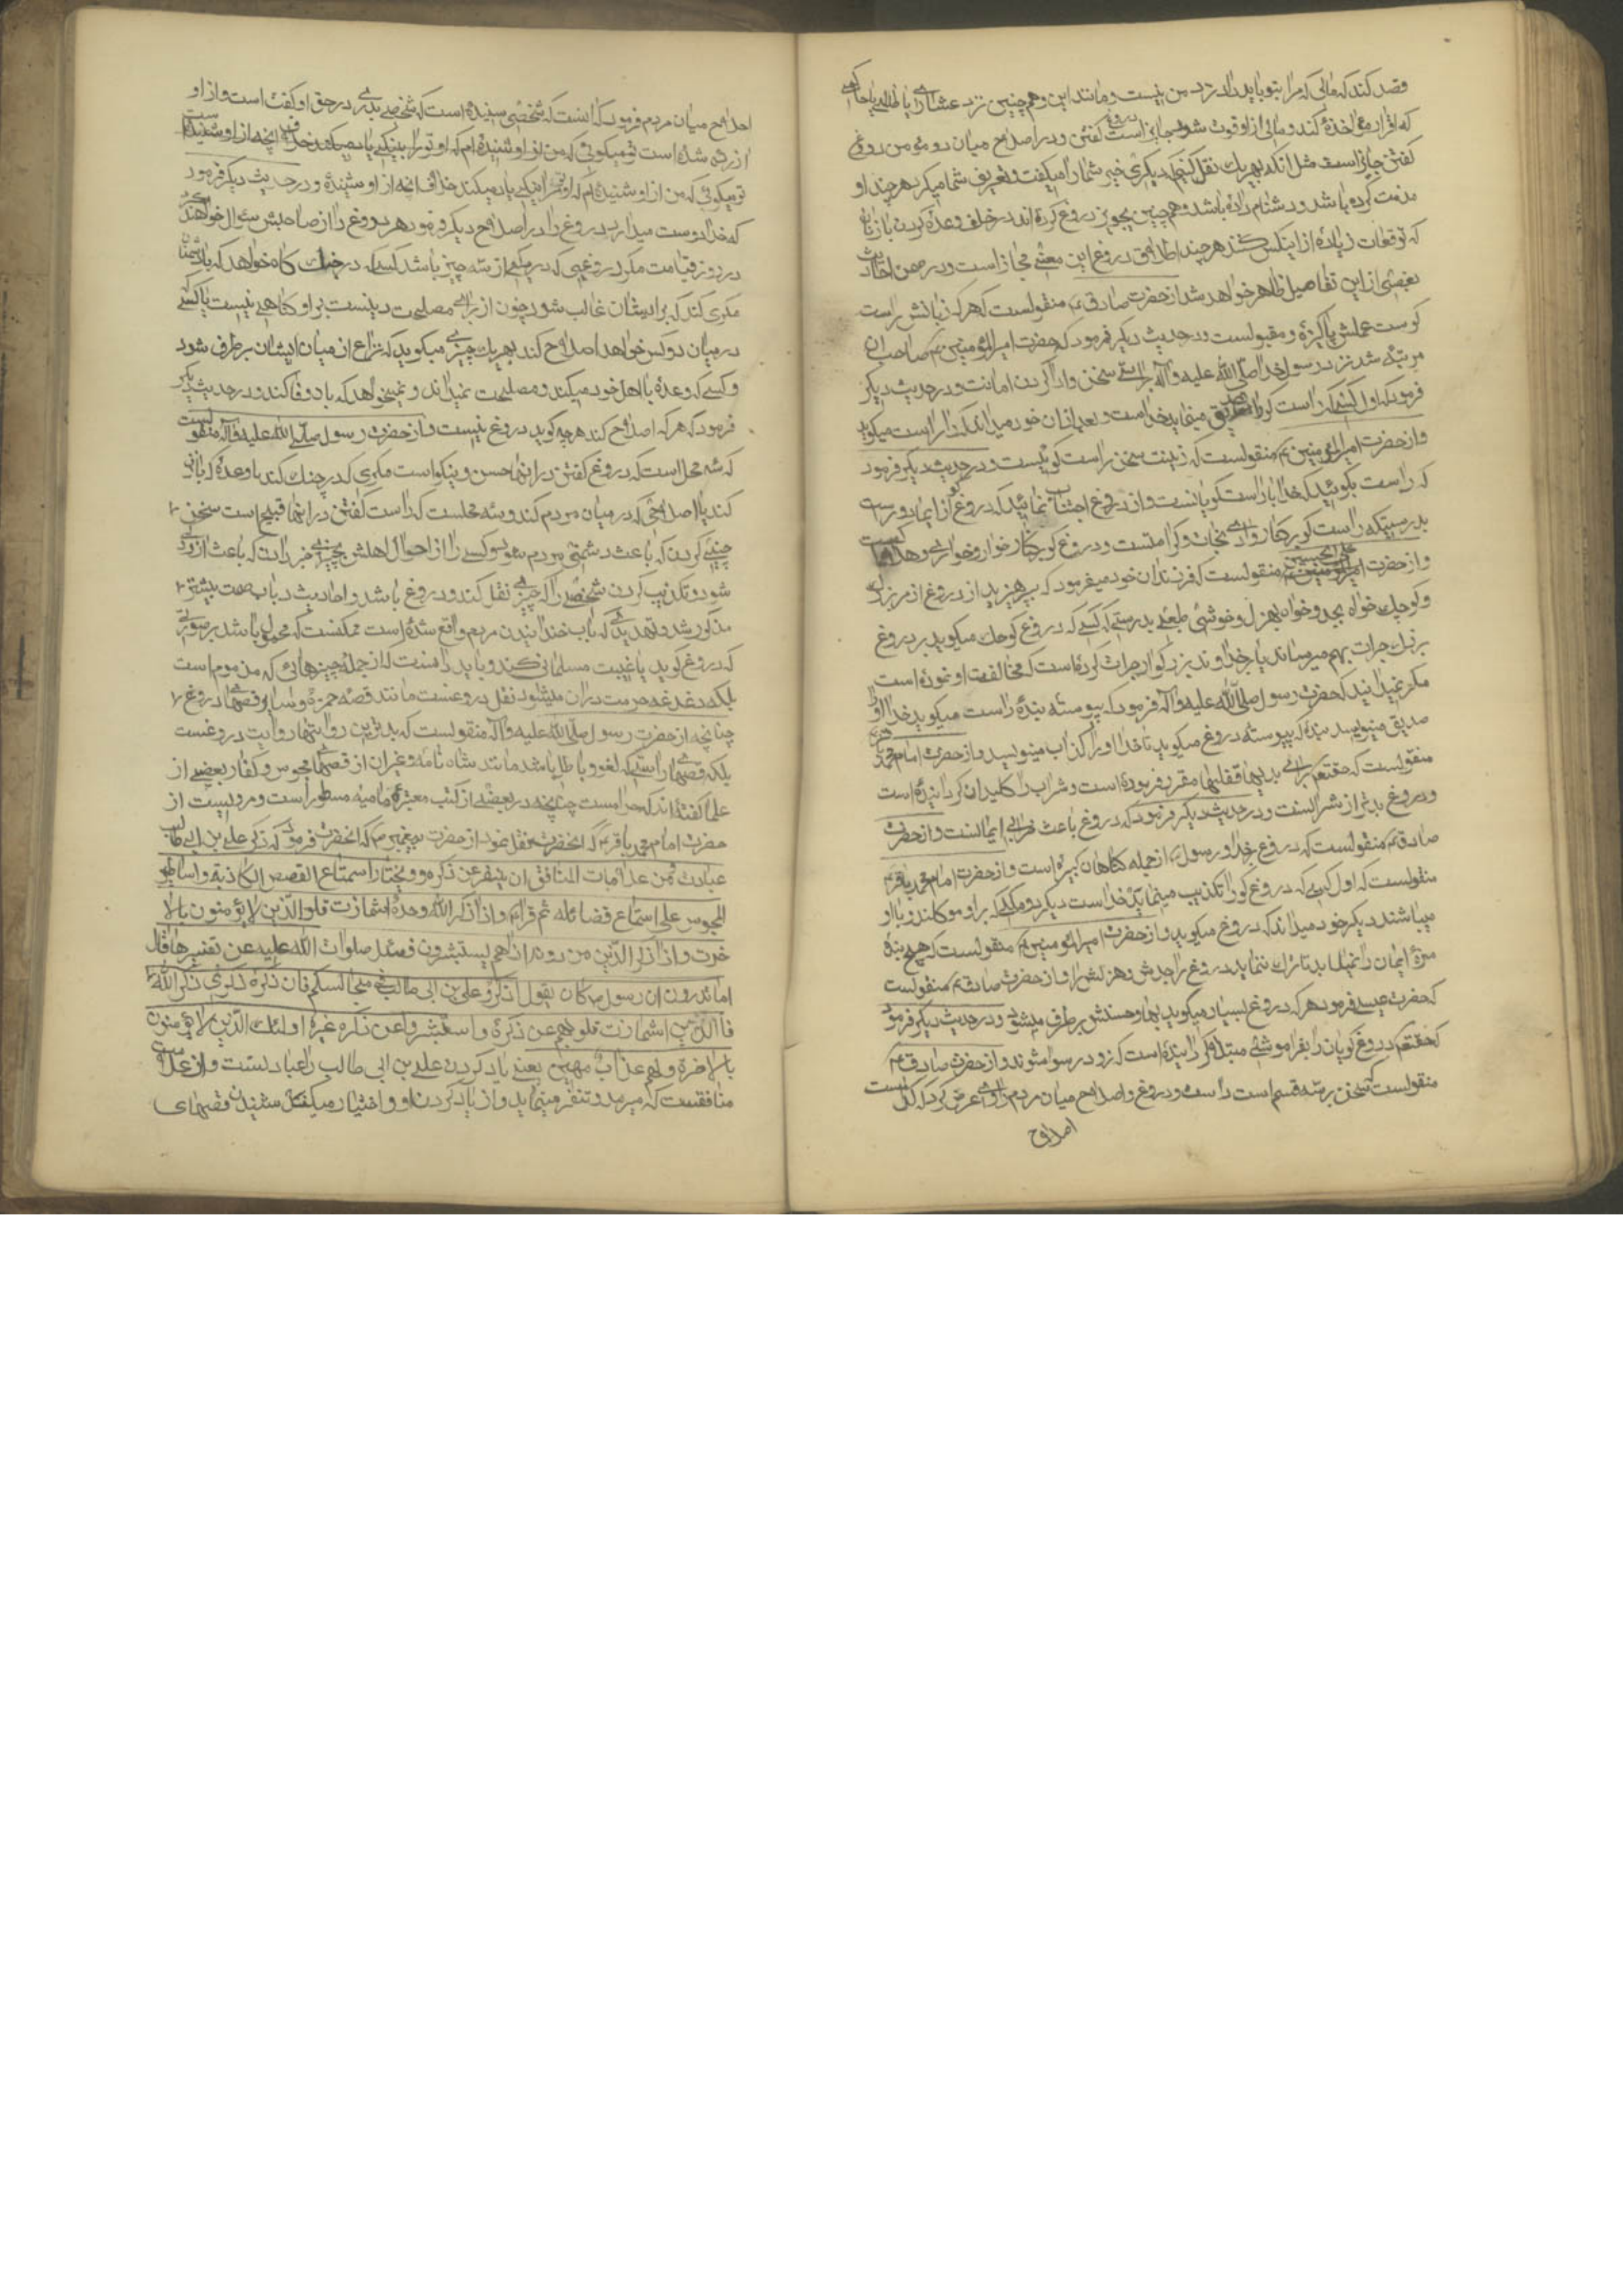 قصد کند که مالی که مرا بتو باید داد نزد من نیست و مانند این و همچنین نزد عشاری یا ظالمی یا حاکمی
که اقرار مؤاخذه کند و مالی از او فوت شود جایز است دروغ گفتن و در اصلاح میان دو مؤمن دروغ
گفتن جایز است مثل آنکه بهر یک نقل کنی که دیگری خیر شما را میگفت و تعریف شما میکرد هرچند او
مذمت کرده باشد و دشنام داده باشد و همچنین تجویز دروغ کرده اند در خلف وعده کردن با زنان
که توقعات زیاده از اینکس کنند هرچند اطلاق دروغ باین معنی مجاز است و در ضمن احادیث
بعضی از این تفاصیل ظاهر خواهد شد از حضرت صادق ع منقولست که هر که زبانش راست
گوست عملش پاکیزه و مقبولست و در حدیث دیگر فرمود که حضرت امیرالمؤمنین ع صاحب آن
مرتبه شد نزد رسول خدا صلی الله علیه وآله براستی سخن و ادا کردن امانت و در حدیث دیگر
فرمود که اول کسی که راست گو را تصدیق مینماید خداست و بعد از آن خود میداند که راست میگوید
و از حضرت امیرالمؤمنین ع منقولست که زینت سخن راست گوئیست و در حدیث دیگر فرمود
که راست بگوئید که خدا با راست گویانست و از دروغ اجتناب نمائید که دروغ از ایمان دور است
بدرستیکه راست گو بر کنار وادی نجات و کرامتست و دروغ گو بر کنار خواری و هلاکست
و از حضرت علی بن الحسین ع منقولست که فرزندان خود میفرمود که بپرهیزید از دروغ از بزرگ
و کوچک خواه بجد و خواه بهزل و خوشی طبعی بدرستی که کسی که دروغ کوچک میگوید بر دروغ
بزرگ جرات بهم میرساند یا بر خداوند بزرگوار جرات کرده است که مخالفت او نموده است
مگر نمیدانید که حضرت رسول صلی الله علیه وآله فرمود که پیوسته بنده راست میگوید تا خدا او را
صدیق مینویسد و بنده که پیوسته دروغ میگوید تا خدا او را کذاب مینویسد و از حضرت امام محمد باقر ع
منقولست که حقتعالی برای بدیها قفلها مقرر فرموده است و شراب را کلید آن گردانیده است
و دروغ بدتر از شرابست و در حدیث دیگر فرمود که دروغ باعث خرابی ایمانست و از حضرت
صادق ع منقولست که دروغ بخدا و رسول از جمله گناهان کبیره است و از حضرت امام محمد باقر ع
منقولست که اول کسی که دروغ گو را تکذیب مینماید خداست دیگر دو ملکی که بر او موکلند و با او
میباشند دیگر خود میداند که دروغ میگوید و از حضرت امیرالمؤمنین ع منقولست که هیچ بنده
مزه ایمان را نمییابد تا ترک ننماید دروغ را جدش و هزلش را و از حضرت صادق ع منقولست
که حضرت عیسی فرمود هر که دروغ بسیار میگوید بها و حسنش برطرف میشود و در حدیث دیگر فرمود
که حقتعم دروغ گویان را بفراموشی مبتلا گردانیده است که زود رسوا شوند و از حضرت صادق ع
منقولست که سخن بر سه قسم است راست و دروغ و اصلاح میان مردم راوی عرض کرد که کدامست
اصلاح
اصلاح میان مردم فرمود که آنست که شخصی شنیده است که شخصی بدی در حق او گفته است و از او
آزرده شده است تو میگوئی که من از او شنیده ام که او ترا به نیکی یاد میکند خلاف آنچه از او شنیده است
تو میگوئی که من از او شنیده ام که او ترا به نیکی یاد میکند خلاف آنچه از او شنیده و در حدیث دیگر فرمود
که خدا دوست میدارد دروغ را در اصلاح دیگر فرمود هر دروغ را از صاحبش سؤال خواهند کرد
در روز قیامت مگر دروغی که در یکی از سه چیز باشد کسی که در جنگ گاه خواهد که با دشمنان
مکری کند که بر ایشان غالب شود چون از برای مصلحت دینست بر او گناهی نیست یا کسی که
در میان دو کس خواهد اصلاح کند بهر یک چیزی میگوید که نزاع از میان ایشان برطرف شود
و کسی که وعده با اهل خود میکند و مصلحت نمیداند و نمیخواهد که باو وفا کند و در حدیث دیگر
فرمود که هر که اصلاح کند هرچه گوید دروغ نیست و از حضرت رسول صلی الله علیه وآله منقولست
که سه محل است که دروغ گفتن در آنها حسن و نیکواست مکری که در جنگ کند یا وعده که با زن
کند یا اصلاحی که در میان مردم کند و سه محلست که راست گفتن در آنها قبیح است سخن
چینی کردن که باعث دشمنی مردم شود و کسی را از احوال اهلش بچیزی خبر دادن که باعث آزردگی
شود و تکذیب کردن شخصی را که چیزی نقل کند و دروغ باشد و احادیث در باب صمت بیشتر
مذکور شد و تهدیدی که باب خندانیدن مردم واقع شده است ممکنست که محمول باشد بر صورتی
که دروغ گوید یا غیبت مسلمانی کند و باید دانست که از جمله چیزهائی که مذموم است
بلکه دغدغه حرمت در آن میشود نقل دروغست مانند قصه حمزه و سایر قصهای دروغ
چنانچه از حضرت رسول صلی الله علیه وآله منقولست که بدترین روایتها روایت دروغست
بلکه قصهای راستی که لغو و باطل باشد مانند شاه نامه و غیر آن از قصهای مجوس و کفار بعضی از
علما گفته اند که حرامست چنانچه در بعضی از کتب معتبره امامیه مسطور است و مرویست از
حضرت امام محمد باقر ع که آنحضرت نقل نمود از حضرت پیغمبر ص که آنحضرت فرمود که ذکر علی بن ابی طالب
عبادت و من علامات المنافق ان یتنفر عن ذکره و یختار استماع القصص الکاذبة و اساطیر
المجوس علی استماع فضائله ثم قرأ ع و اذا ذکر الله وحده اشمازت قلوب الذین لا یؤمنون بالا
خرت و اذا ذکر الذین من دونه اذا هم یستبشرون فسئل صلوات الله علیه عن تفسیرها قال
اما تدرون ان رسول ص کان یقول اذکروا علی بن ابی طالب فی مجالسکم فان ذکره ذکری و ذکری ذکر الله
فاالذین اشمازت قلوبهم عن ذکره و استبشروا عن ذکر غیره اولئک الذین لا یؤمنون
بالاخرة و لهم عذاب مهین یعنی یاد کردن علی بن ابی طالب ع عبادتست و از علامت
منافقست که میرمد و تنفر مینماید و از یاد کردن او و اختیار میکند شنیدن قصهای